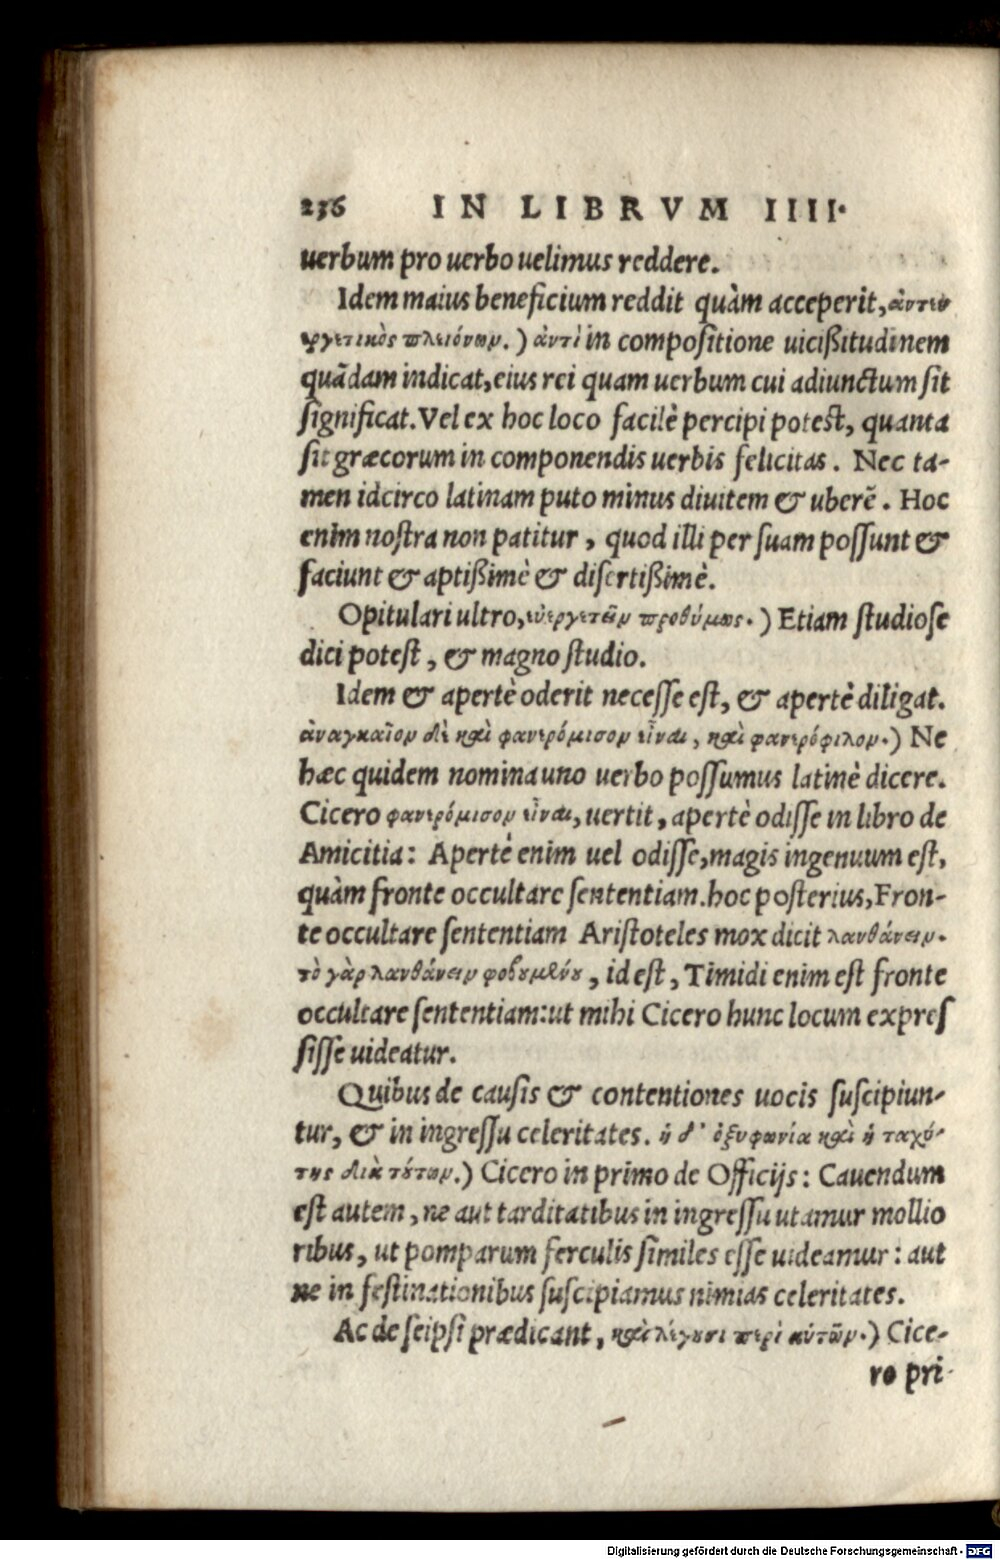 236 IN LIBRVM IIII.
uerbum pro uerbo uelimus reddere.
Idem maius beneficium reddit quàm acceperit, ἀντευ
εργετικὸς πλειόνων.) ἀντὶ in compositione uicißitudinem
quãdam indicat, eius rei quam uerbum cui adiunctum sit
significat. Vel ex hoc loco facilè percipi potest, quanta
sit græcorum in componendis uerbis felicitas. Nec ta-
men idcirco latinam puto minus diuitem & uberẽ. Hoc
enim nostra non patitur, quod illi per suam possunt &
faciunt & aptißimè & disertißimè.
Opitulari ultro, εὐεργετεῖν προθύμως.) Etiam studiose
dici potest, & magno studio.
Idem & apertè oderit necesse est, & apertè diligat.
ἀναγκαῖον δὲ καὶ φανερόμισον εἶναι, καὶ φανερόφιλον.) Ne
hæc quidem nomina uno uerbo possumus latinè dicere.
Cicero φανερόμισον εἶναι, uertit, apertè odisse in libro de
Amicitia: Apertè enim uel odisse, magis ingenuum est,
quàm fronte occultare sententiam. hoc posterius, Fron-
te occultare sententiam Aristoteles mox dicit λανθάνειν.
τὸ γὰρ λανθάνειν φοβουμένου, id est, Timidi enim est fronte
occultare sententiam: ut mihi Cicero hunc locum expres
sisse uideatur.
Quibus de causis & contentiones uocis suscipiun-
tur, & in ingressu celeritates. ἡ δ' ὀξυφωνία καὶ ἡ ταχύ-
της διὰ τούτων.) Cicero in primo de Officijs: Cauendum
est autem, ne aut tarditatibus in ingressu utamur mollio
ribus, ut pomparum ferculis similes esse uideamur: aut
ne in festinationibus suscipiamus nimias celeritates.
Ac de seipsi prædicant, καὶ λέγουσι περὶ αὐτῶν.) Cice-
ro pri-
Digitalisierung gefördert durch die Deutsche Forschungsgemeinschaft - DFG